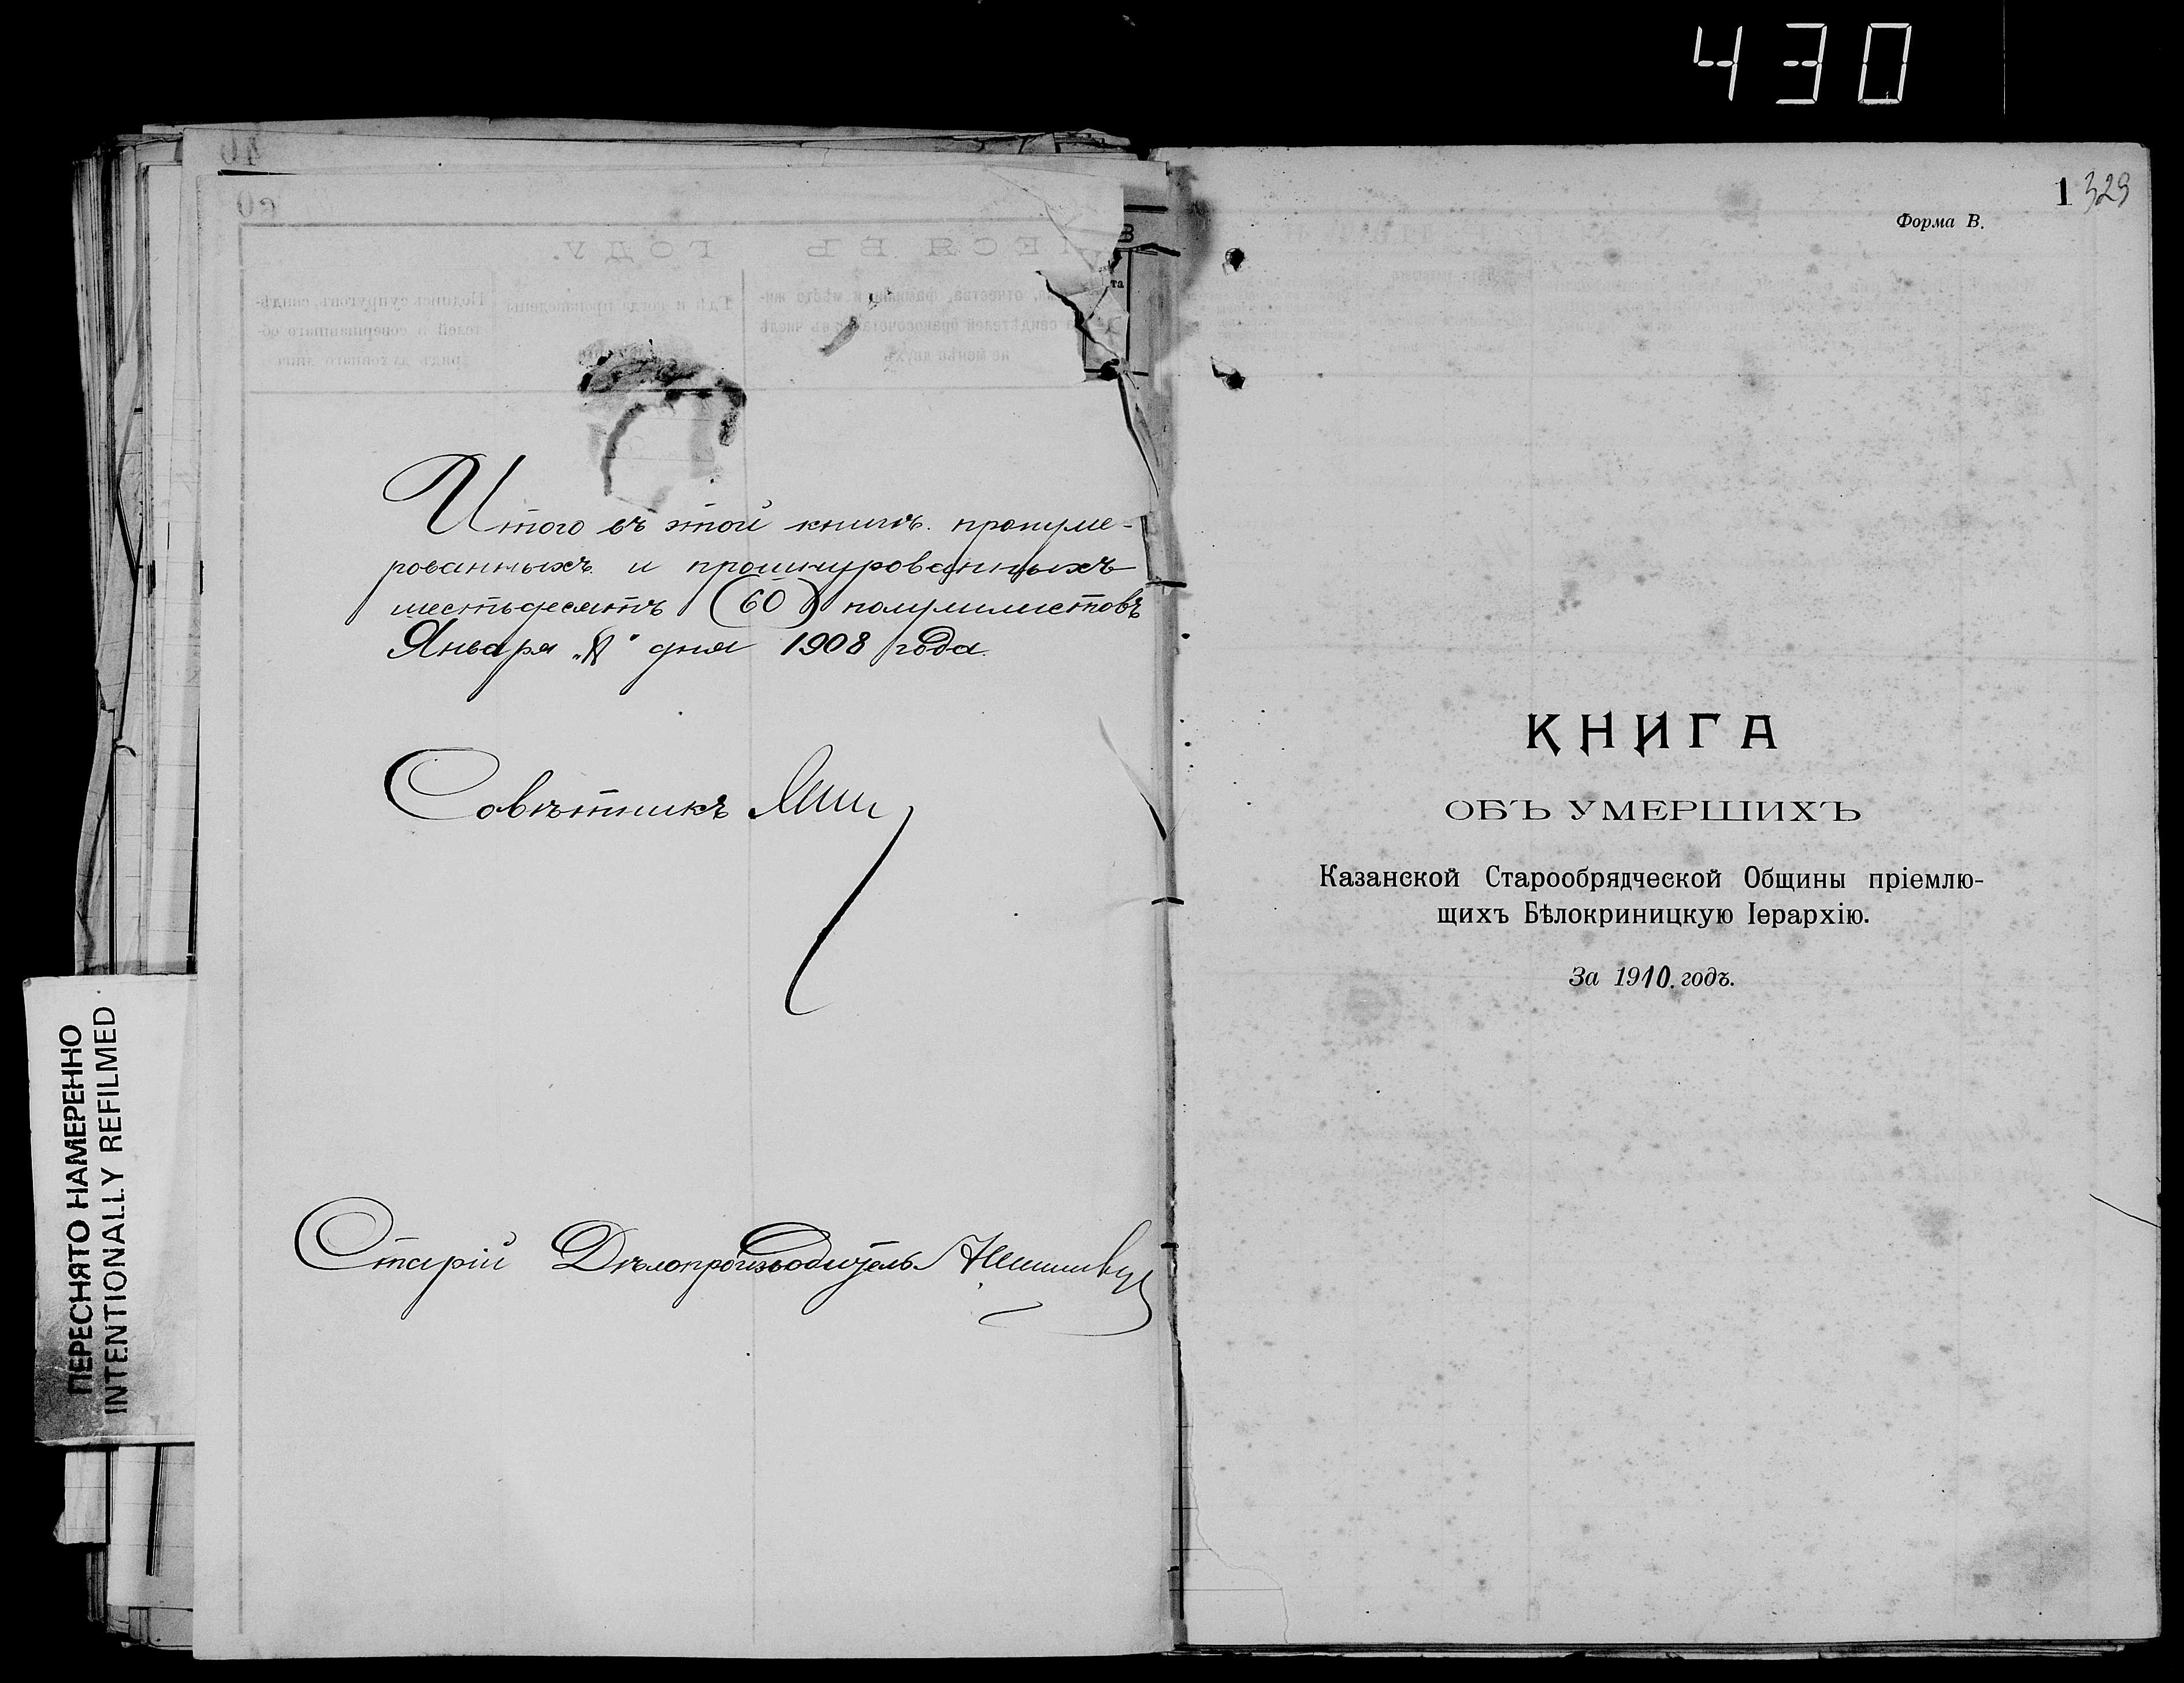 430
Итого въ этой книгѣ пронуме-
рованныхъ и прошнурованныхъ
шестьдесятъ (60) полулистовъ
Января дня 1908 года
Совѣтникъ
Старій Дѣлопроизводитель
ПЕРЕСНЯТО НАМЕРЕННО
INTENTIONALLY REFILMED
1 329
Форма В.
КНИГА
ОБЪ УМЕРШИХЪ
Казанской Старообрядческой Общины пріемлю-
щихъ Бѣлокриницкую Іерархію.
За 1910. годъ.